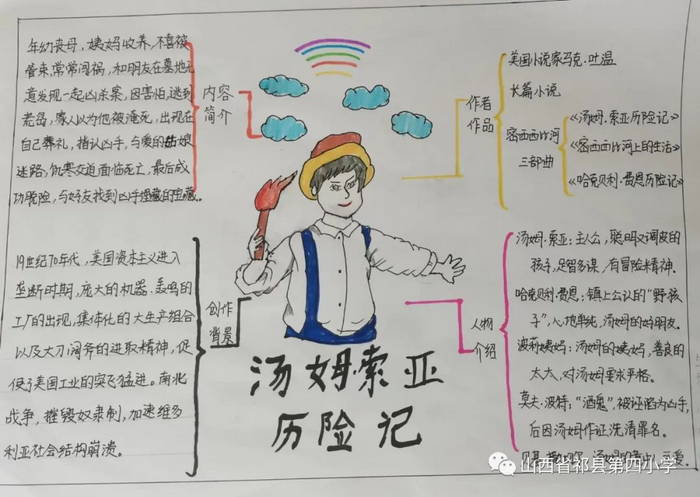 年幼丧母，姨妈收养，不喜被
管束，常常闯祸，和朋友在墓地无
意发现一起凶杀案，因害怕，逃到
老岛，家人以为他被淹死，出现在
自己葬礼，指认凶手，与爱的姑娘
迷路，饥寒交迫面临死亡，最后成
功脱险，与好友找到凶手埋藏的宝藏。
内容
简介
作者
作品
美国小说家马克·吐温
长篇小说
密西西比河
三部曲
《汤姆·索亚历险记》
《密西西比河上的生活》
《哈克贝利·费恩历险记》
19世纪70年代，美国资本主义进入
垄断时期，庞大的机器、轰鸣的
工厂的出现，集体化的大生产组合
以及大刀阔斧的进取精神，促
使了美国工业的突飞猛进。南北
战争，摧毁奴隶制，加速维多
利亚社会结构崩溃。
创作
背景
人物
介绍
汤姆·索亚：主人公，聪明又调皮的
孩子，足智多谋，有冒险精神。
哈克贝利·费恩：镇上公认的“野孩
子”，心地单纯，汤姆的好朋友。
波莉姨妈：汤姆的姨妈，善良的
太太，对汤姆要求严格。
莫夫·波特：“酒鬼”，被诬陷为凶手，
后因汤姆作证洗清罪名。
汤姆索亚
历险记
山西省祁县第四小学